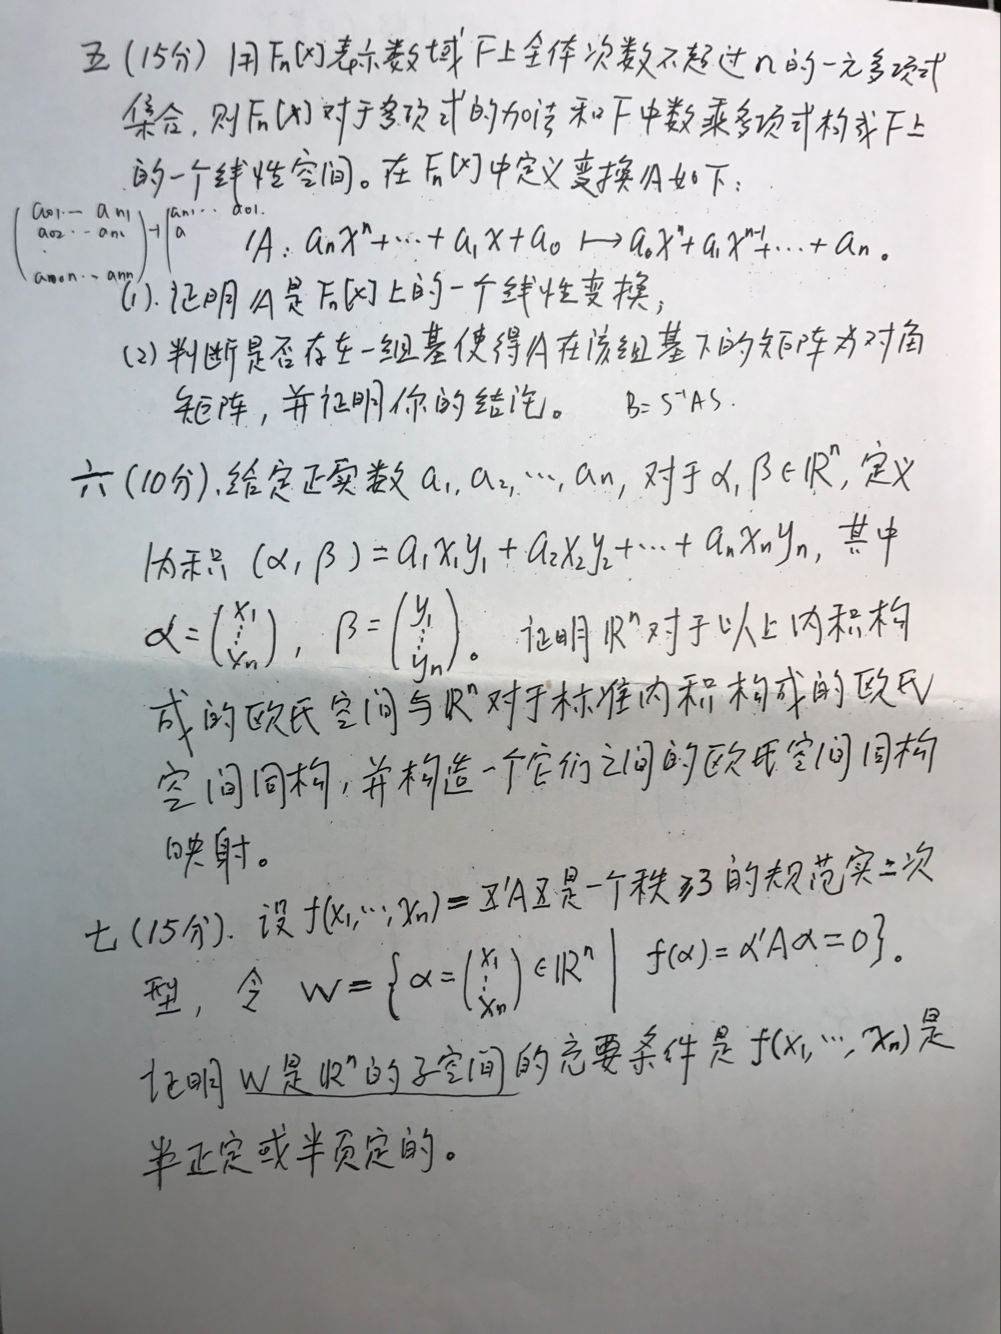 五(15分) 用Fn[x]表示数域F上全体次数不超过n的一元多项式
集合,则Fn[x]对于多项式的加法和F中数乘多项式构成F上
的一个线性空间。在Fn[x]中定义变换A如下:
a01 … an1 an1 … a01.
a02 … an2 a
A: anxⁿ+…+a1x+a0 ↦ a0xⁿ+a1xⁿ⁻¹+…+an。
(1).证明A是Fn[x]上的一个线性变换;
(2)判断是否存在一组基使得A在该组基下的矩阵为对角
矩阵,并证明你的结论。 B=S⁻¹AS.
六(10分).给定正实数a1,a2,…,an,对于α,β∈ℝⁿ,定义
内积(α,β)=a1x1y1+a2x2y2+…+anxnyn,其中
α=(x1 ⋮ xn), β=(y1 ⋮ yn)。 证明ℝⁿ对于以上内积构
成的欧氏空间与ℝⁿ对于标准内积构成的欧氏
空间同构,并构造一个它们之间的欧氏空间同构
映射。
七(15分).设f(x1,…,xn)=X'AX是一个秩≥3的规范实二次
型,令 W={α=(x1 ⋮ xn)∈ℝⁿ | f(α)=α'Aα=0}。
证明W是ℝⁿ的子空间的充要条件是f(x1,…,xn)是
半正定或半负定的。